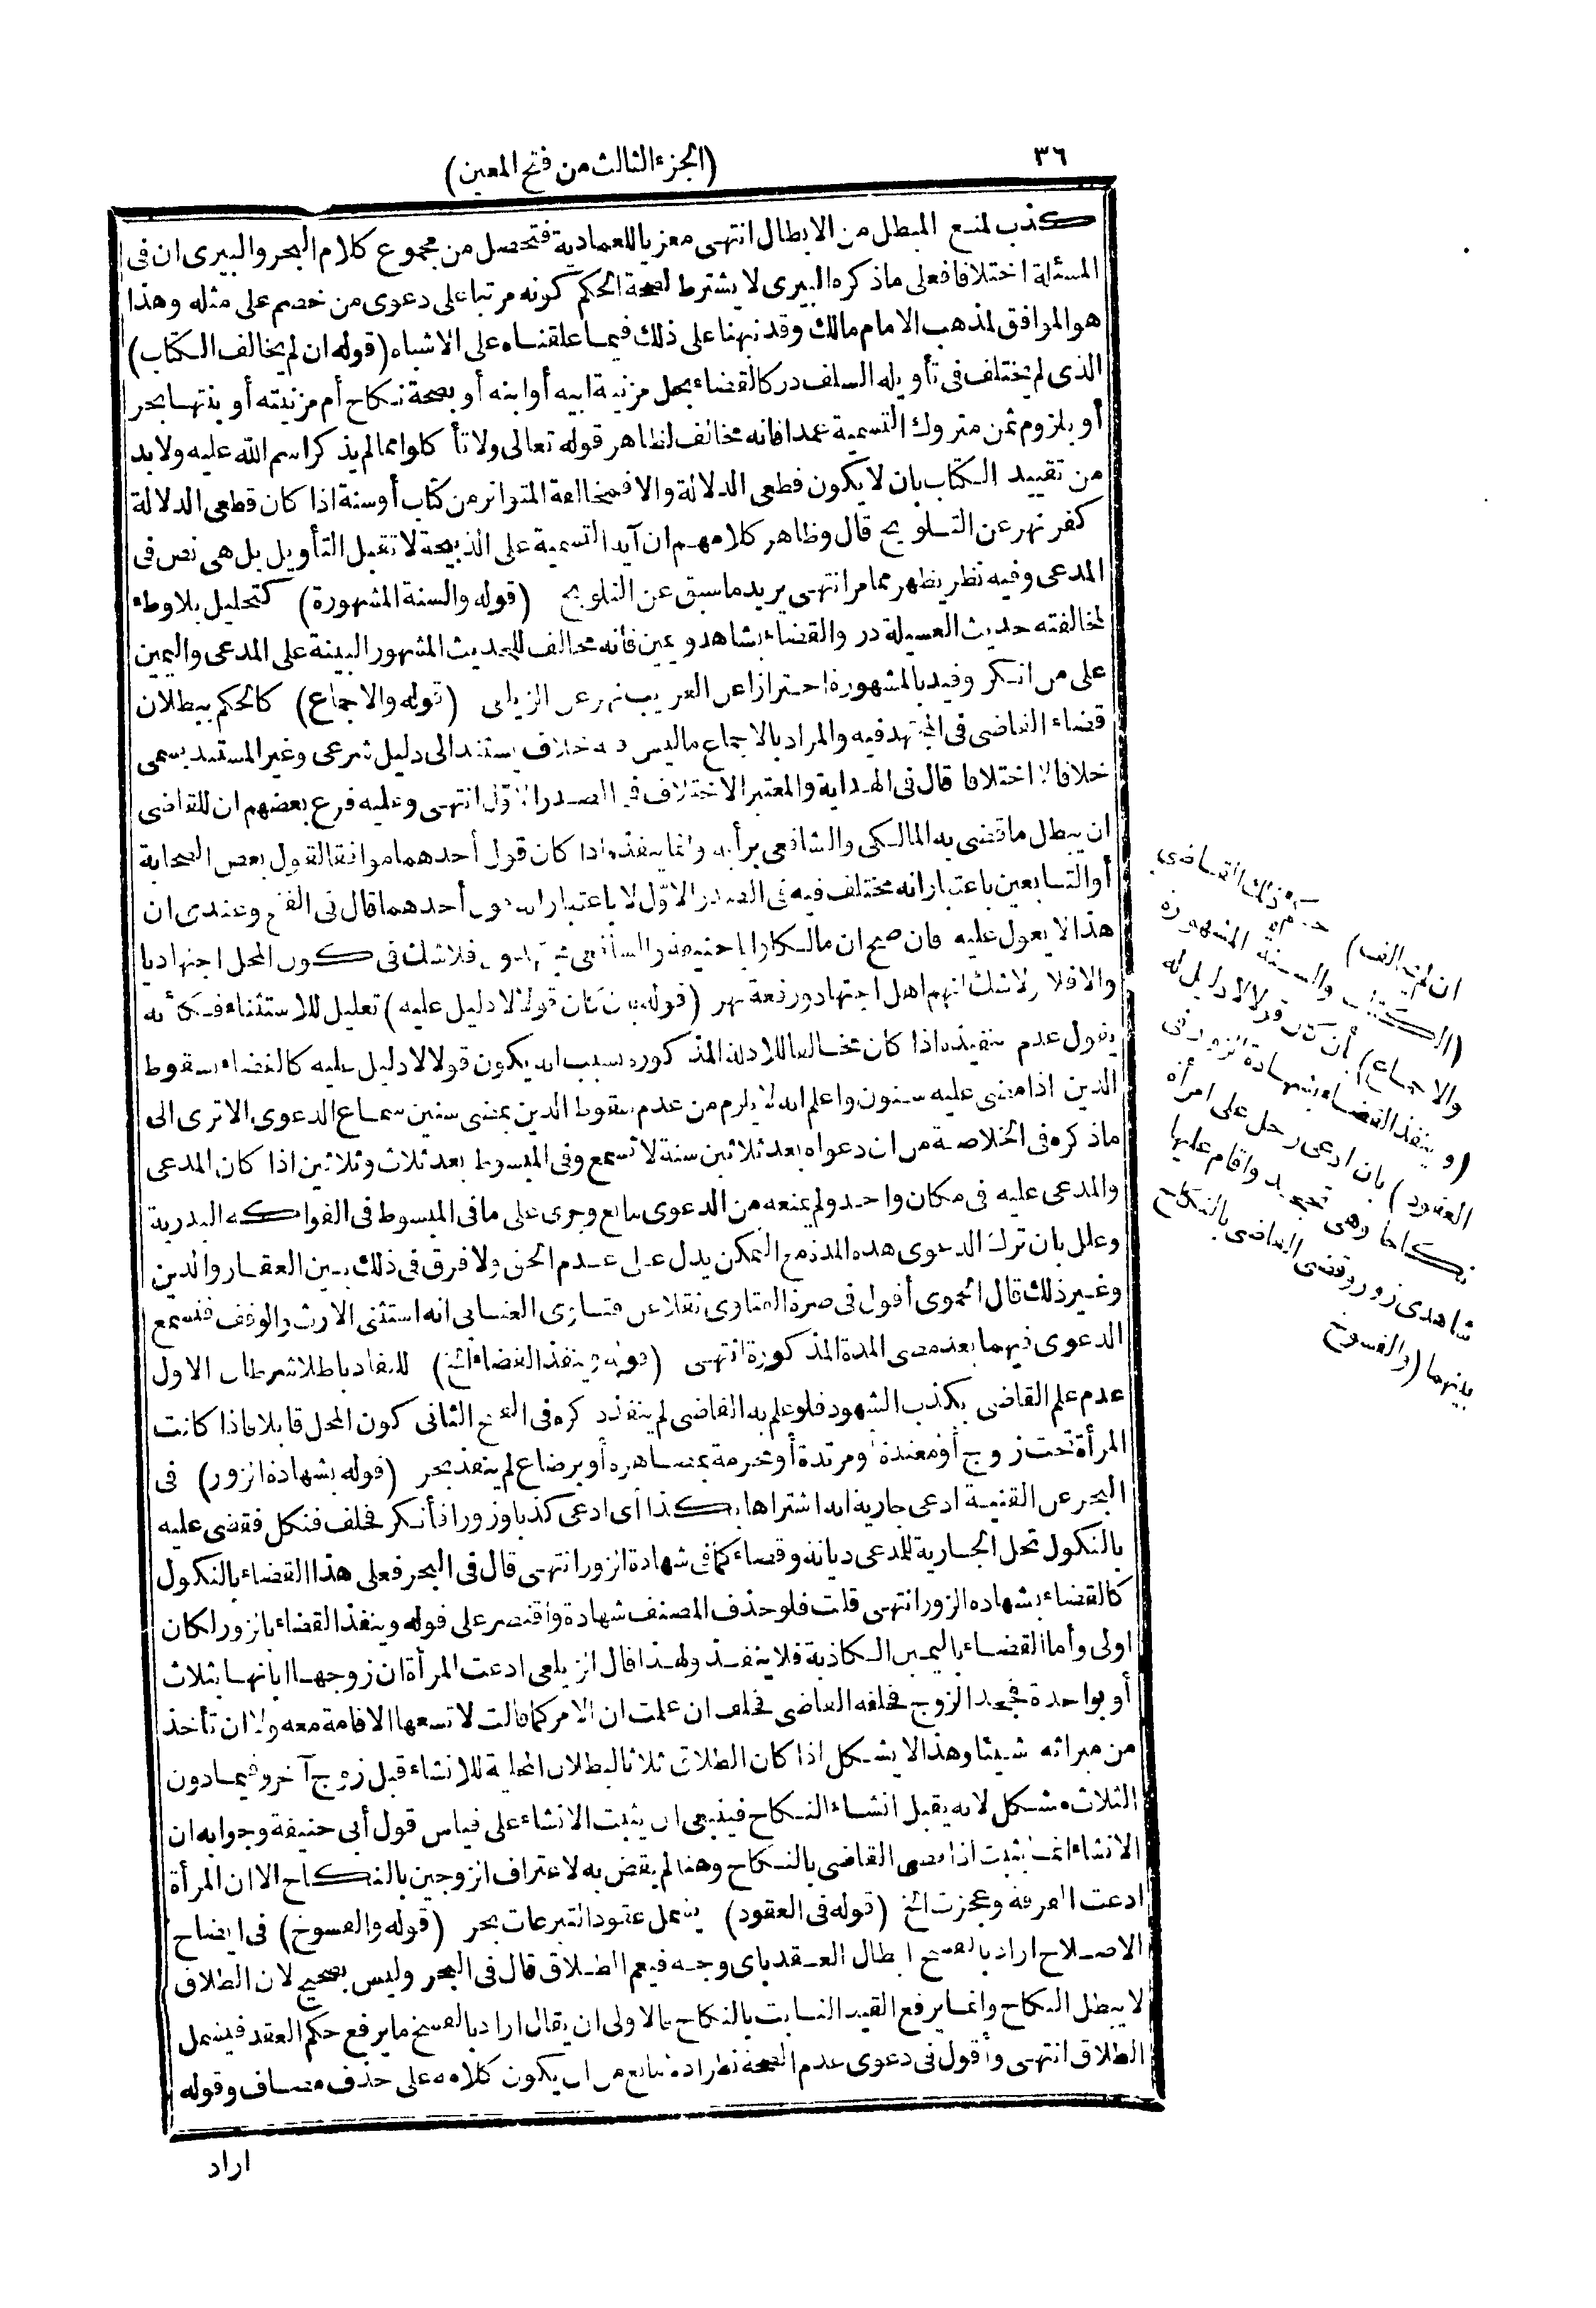 ٣٦
(الجزء الثالث من فتح المعين)
كذب لمنع المبطل من الابطال انتهى معزيا للعمادية فتحصل من مجموع كلام البحر والبيرى ان فى
المسئلة اختلافا فعلى ماذكره البيرى لا يشترط لصحة الحكم كونه مرتبا على دعوى من خصم على مثله وهذا
هو الموافق لمذهب الامام مالك وقد نبهنا على ذلك فيما علقناه على الاشباه (قوله ان لم يخالف الكتاب)
الذى لم يختلف فى تأويله السلف در كالقضاء بحل مزنية ابيه أو ابنه أو بصحة نكاح أم مزنيته أو بنتها بحر
أو بلزوم ثمن متروك التسمية عمدا فانه مخالف لظاهر قوله تعالى ولا تأكلوا مما لم يذكر اسم الله عليه ولا بد
من تقييد الكتاب بان لا يكون قطعى الدلالة والا فمخالفة المتواتر من كتاب أو سنة اذا كان قطعى الدلالة
كفر نهر عن التلويح قال وظاهر كلامهم ان آية التسمية على الذبيحة لا تقبل التأويل بل هى نص فى
المدعى وفيه نظر يظهر مما مر انتهى يريد ما سبق عن التلويح (قوله والسنة المشهورة) كتحليل بلا وطء
لمخالفته حديث العسيلة در والقضاء بشاهد ويمين فانه مخالف للحديث المشهور البينة على المدعى واليمين
على من انكر وقيد بالمشهورة احترازا عن الغريب نهر عن الزيلعى (قوله والاجماع) كالحكم ببطلان
قضاء القاضى فى المجتهد فيه والمراد بالاجماع ما ليس فيه خلاف يستند الى دليل شرعى وغير المستند يسمى
خلافا لا اختلافا قال فى الهداية والمعتبر الاختلاف فى الصدر الاوّل انتهى وعليه فرع بعضهم ان للقاضى
ان يبطل ما قضى به المالكى والشافعى برأيه وانما ينفذ اذا كان قول أحدهما موافقا لقول بعض الصحابة
أو التابعين باعتبار انه مختلف فيه فى الصدر الاوّل لا باعتبار انه قول أحدهما قال فى الفتح وعندى ان
هذا لا يعول عليه فان صح ان مالكا وابا حنيفة والشافعى مجتهدون فلا شك فى كون المحل اجتهاديا
والا فلا ولا شك انهم اهل اجتهاد ورفعة نهر (قوله بان كان قولا لا دليل عليه) تعليل للاستثناء فكأنه
يقول عدم تنفيذه اذا كان مخالفا للادلة المذكورة بسبب انه يكون قولا لا دليل عليه كالقضاء بسقوط
الدين اذا مضى عليه سنون واعلم انه لا يلزم من عدم سقوط الدين بمضى سنين سماع الدعوى الا ترى الى
ماذكره فى الخلاصة من ان دعواه بعد ثلاثين سنة لا تسمع وفى المبسوط بعد ثلاث وثلاثين اذا كان المدعى
والمدعى عليه فى مكان واحد ولم يمنعه من الدعوى مانع وجرى على ما فى المبسوط فى الفواكه البدرية
وعلل بان ترك الدعوى هذه المدة مع التمكن يدل على عدم الحق ولا فرق فى ذلك بين العقار والدين
وغير ذلك قال الحموى أقول فى صرة الفتاوى نقلا عن فتاوى العتابى انه استثنى الارث والوقف فتسمع
الدعوى فيهما بعد مضى المدة المذكورة انتهى (قوله وينفذ القضاء الخ) للنفاذ باطنا شرطان الاول
عدم علم القاضى بكذب الشهود فلو علم به القاضى لم ينفذ ذكره فى الفتح الثانى كون المحل قابلا فاذا كانت
المرأة تحت زوج أو معتدة أو مرتدة أو محرمة بمصاهرة أو برضاع لم ينفذ بحر (قوله بشهادة الزور) فى
البحر عن القنية ادعى جارية انه اشتراها بكذا أى ادعى كذبا وزورا فأنكر فحلف فنكل فقضى عليه
بالنكول تحل الجارية للمدعى ديانة وقضاء كما فى شهادة الزور انتهى قال فى البحر فعلى هذا القضاء بالنكول
كالقضاء بشهادة الزور انتهى قلت فلو حذف المصنف شهادة واقتصر على قوله وينفذ القضاء بالزور لكان
اولى وأما القضاء باليمين الكاذبة فلا ينفذ ولهذا قال الزيلعى ادعت المرأة ان زوجها ابانها بثلاث
أو بواحدة فجحد الزوج فحلفه القاضى فحلف ان علمت ان الامر كما قالت لا تسعها الاقامة معه ولا ان تأخذ
من ميراثه شيئا وهذا لا يشكل اذا كان الطلاق ثلاثا لبطلان المحلية للانشاء قبل زوج آخر وفيما دون
الثلاث مشكل لانه يقبل انشاء النكاح فينبغى ان يثبت الانشاء على قياس قول أبى حنيفة وجوابه ان
الانشاء انما يثبت اذا قضى القاضى بالنكاح وهنا لم يقض به لاعتراف الزوجين بالنكاح الا ان المرأة
ادعت الفرقة وعجزت الخ (قوله فى العقود) يشمل عقود التبرعات بحر (قوله والفسوخ) فى ايضاح
الاصلاح اراد بالفسخ ابطال العقد باى وجه فيعم الطلاق قال فى البحر وليس بصحيح لان الطلاق
لا يبطل النكاح وانما يرفع القيد الثابت بالنكاح فالاولى ان يقال اراد بالفسخ ما يرفع حكم العقد فيشمل
الطلاق انتهى وأقول فى دعوى عدم الصحة نظر اذ لا مانع من ان يكون كلامه على حذف مضاف وقوله
اراد
حكم ذلك القاضى
ان لم يخالف)
(الكتاب والسنة المشهورة
والاجماع) بان كان قولا لا دليل له
(وينفذ القضاء بشهادة الزور فى
العقود) بان ادعى رجل على امرأة
نكاحا وهى تجحد واقام عليها
شاهدى زور وقضى القاضى بالنكاح
بينهما (والفسوخ